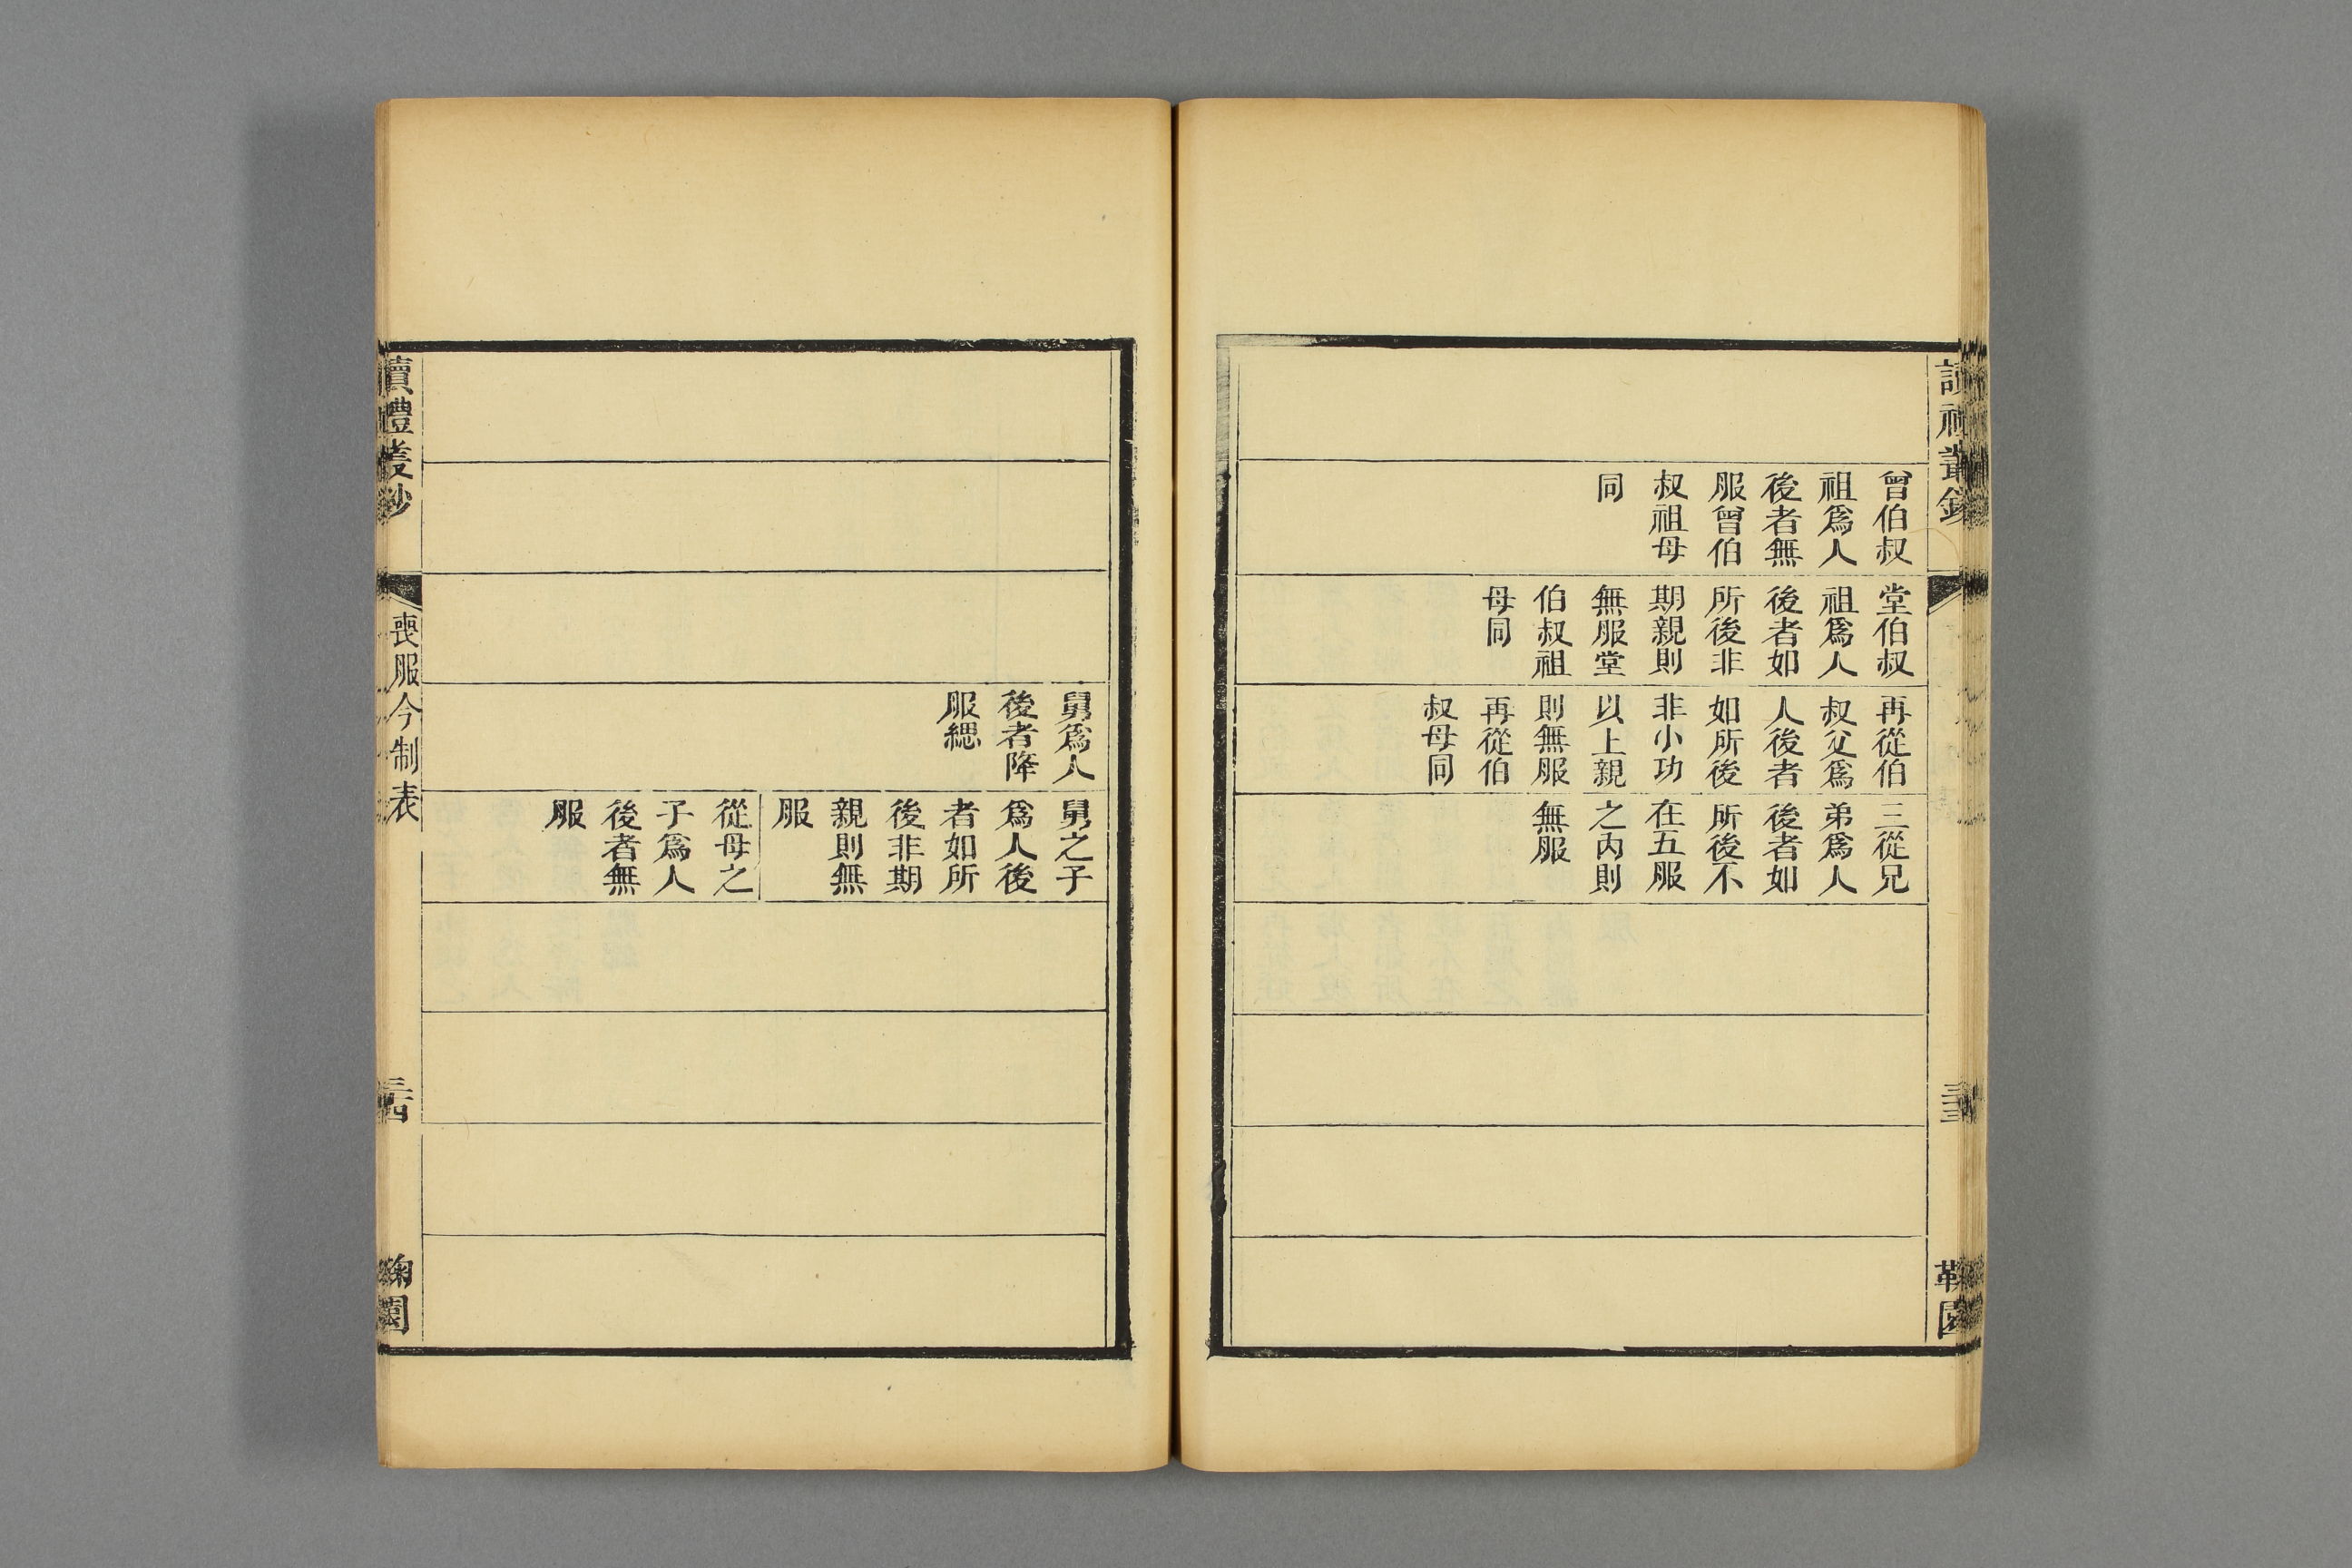 讀禮叢鈔
三十三
鞠園
曾伯叔
祖爲人
後者無
服曾伯
叔祖母
同
堂伯叔
祖爲人
後者如
所後非
期親則
無服堂
伯叔祖
母同
再從伯
叔父爲
人後者
如所後
非小功
以上親
則無服
再從伯
叔母同
三從兄
弟爲人
後者如
所後不
在五服
之內則
無服
舅爲人
後者降
服緦
舅之子
爲人後
者如所
後非期
親則無
服
從母之
子爲人
後者無
服
讀禮叢鈔
喪服今制表
三十四
鞠園